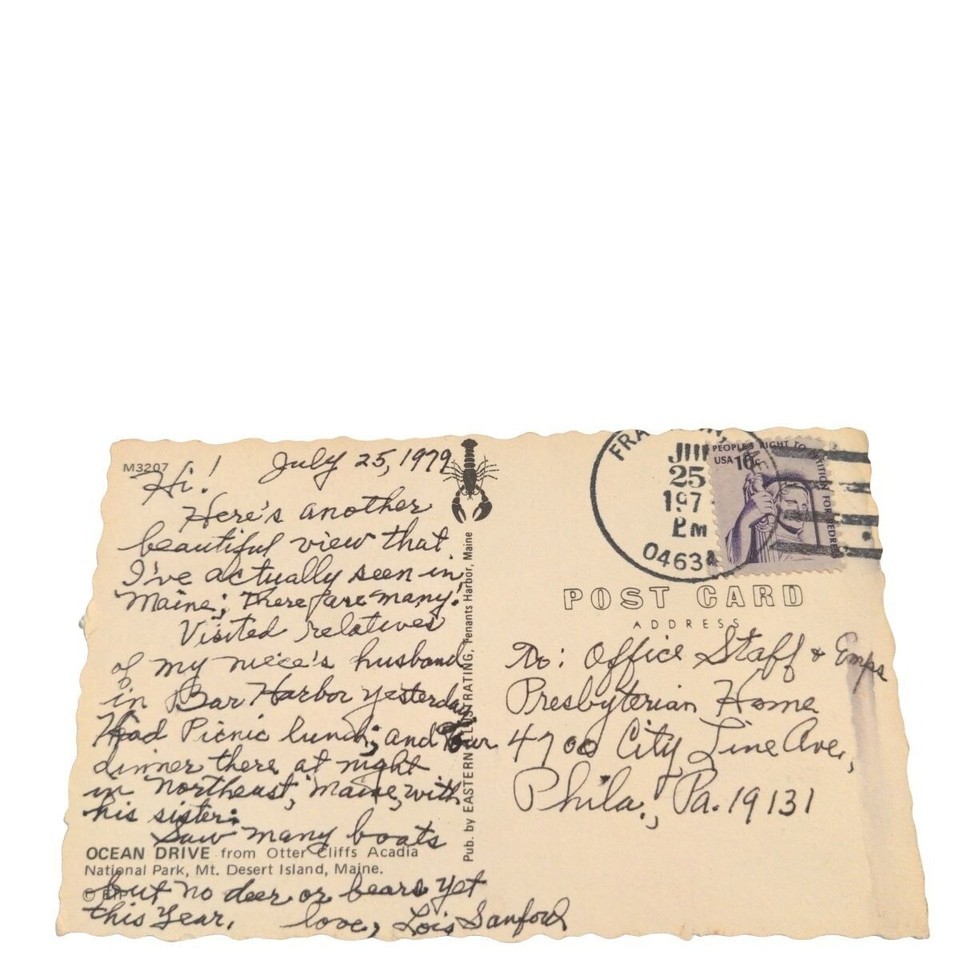 M3207
Hi! July 25, 1979
Here's another
beautiful view that
I've actually seen in
Maine; there are many!
Visited relatives
of my niece's husband
in Bar Harbor yesterday
Had Picnic lunch; and our
dinner there at night
in Northeast, Maine, with
his sister.
Saw many boats
OCEAN DRIVE from Otter Cliffs Acadia
National Park, Mt. Desert Island, Maine.
but no deer or bears yet
this year. love, Lois Sanford
Pub. by EASTERN ILLUSTRATING, Tenants Harbor, Maine
25
197
PM
0463
USA 10c
POST CARD
ADDRESS
To: Office Staff & Emps
Presbyterian Home
4700 City Line Ave.,
Phila., Pa. 19131